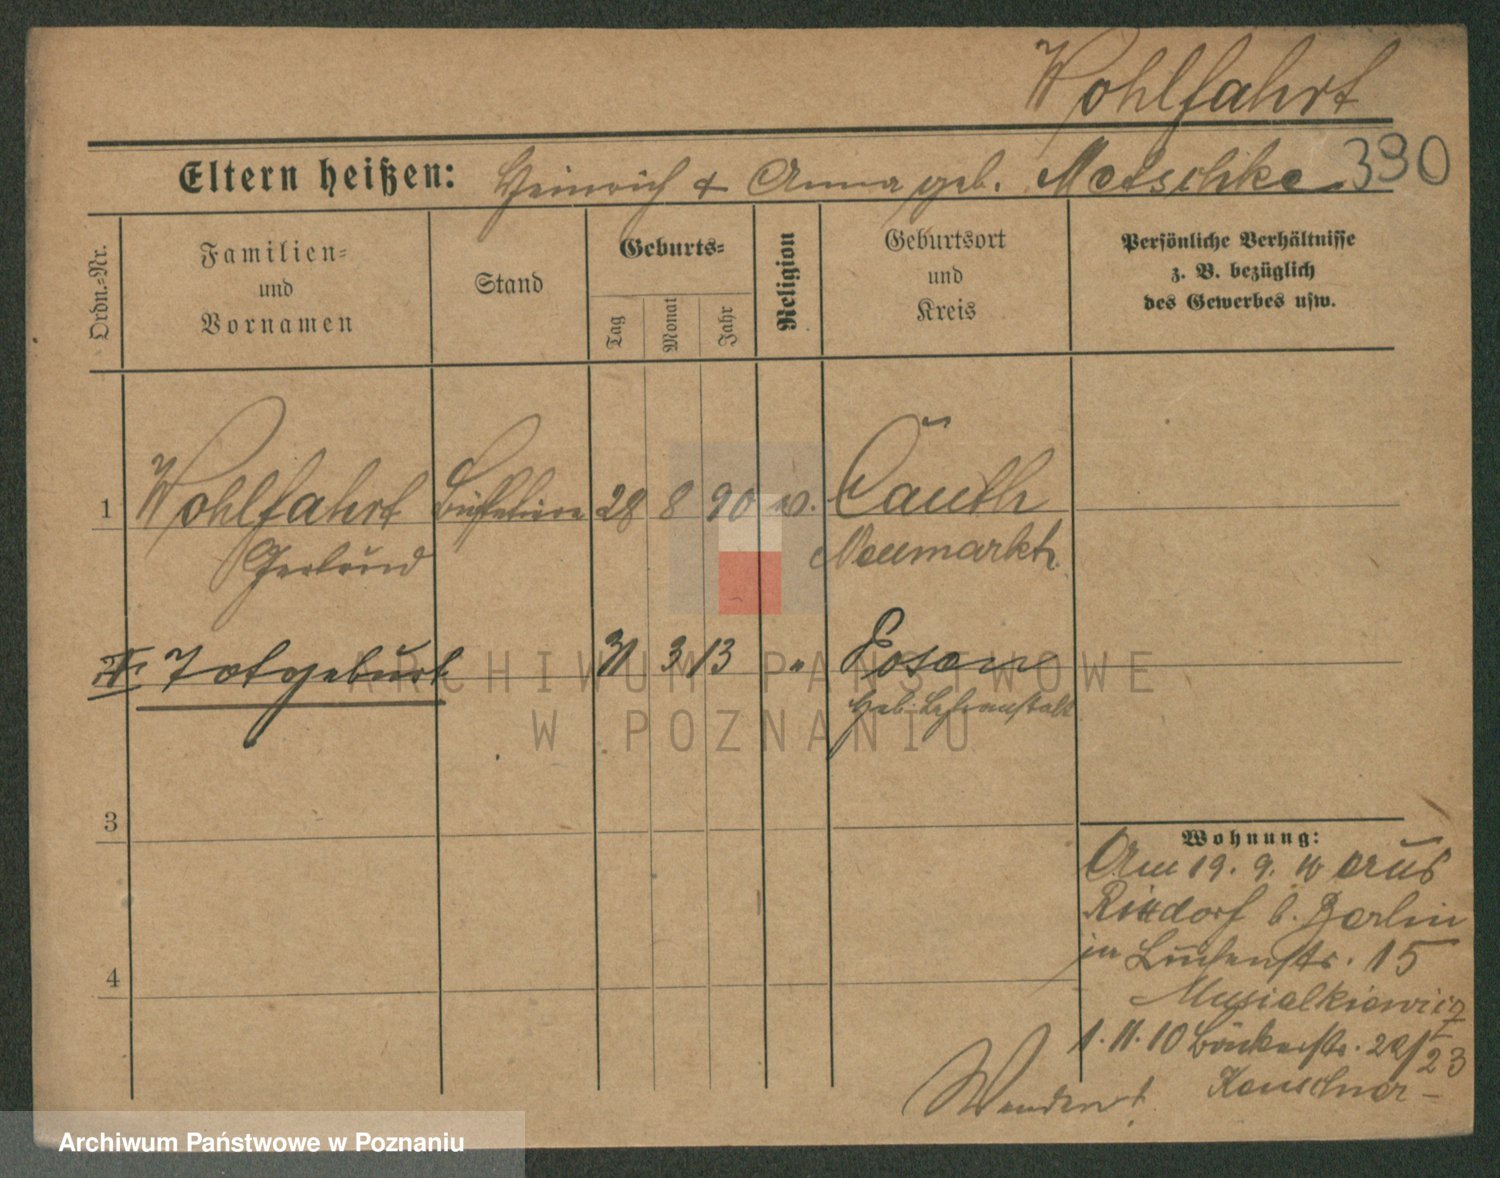 Wohlfahrt
Eltern heißen: Heinrich & Anna geb. Metschke 390
Ordn.-Nr.
Familien-
und
Vornamen
Stand
Geburts-
Tag
Monat
Jahr
Religion
Geburtsort
und
Kreis
Persönliche Verhältnisse
z. B. bezüglich
des Gewerbes usw.
1 Wohlfahrt 28 8 90 Cauth
Gertrud Neumarkt
II. Totgeburt 31 3 13 " Posen
Geb. Lehranstalt
3
Wohnung:
Am 19. 9. 10 aus
Rixdorf b. Berlin
in 15
Musialkiewicz
4
1. 11. 10 Bäckerstr. 22/23
Wenden!
ARCHIWUM PAŃSTWOWE
W POZNANIU
Archiwum Państwowe w Poznaniu